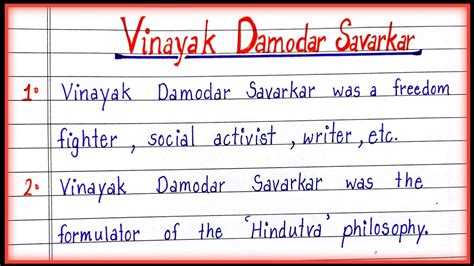 Vinayak Damodar Savarkar
1. Vinayak Damodar Savarkar was a freedom
fighter, social activist, writer, etc.
2. Vinayak Damodar Savarkar was the
formulator of the 'Hindutva' philosophy.